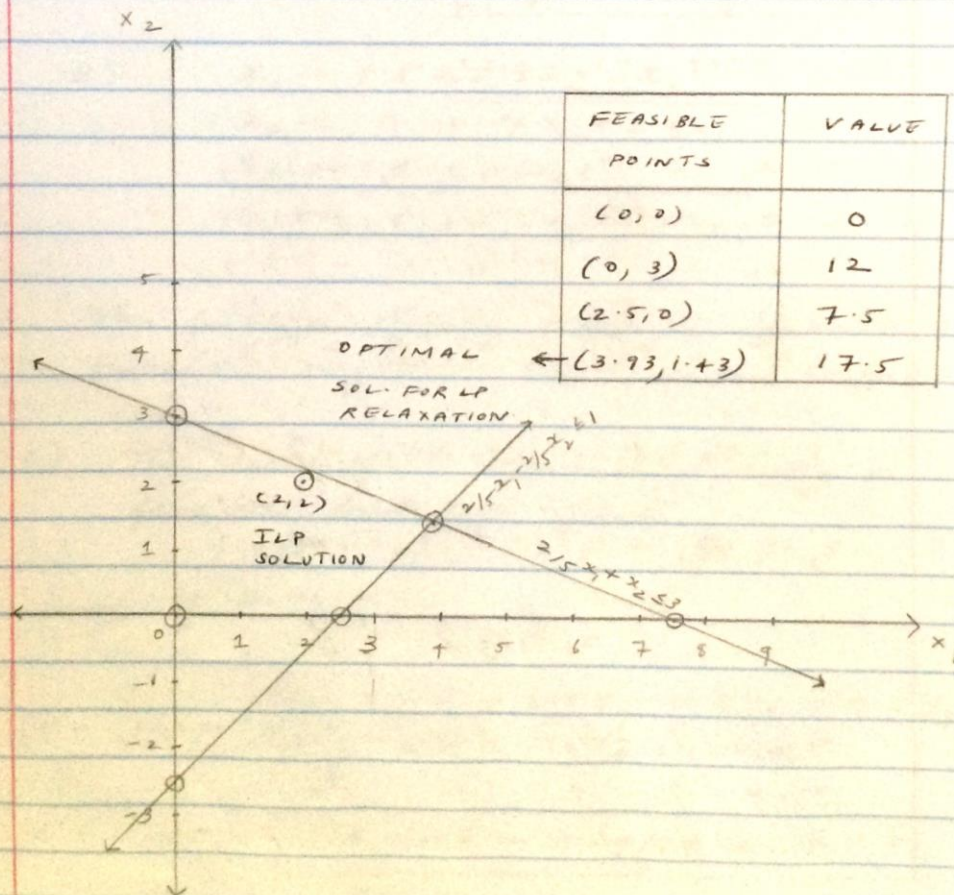 x2
FEASIBLE POINTS VALUE
(0,0) 0
(0, 3) 12
(2.5,0) 7.5
(3.93,1.43) 17.5
OPTIMAL
SOL. FOR LP
RELAXATION
5
4
3
2
1
(2,2)
ILP
SOLUTION
2/5 x1 - 2/5 x2 ≤ 1
2/5 x1 + x2 ≤ 3
0 1 2 3 4 5 6 7 8 9
x1
-1
-2
-3